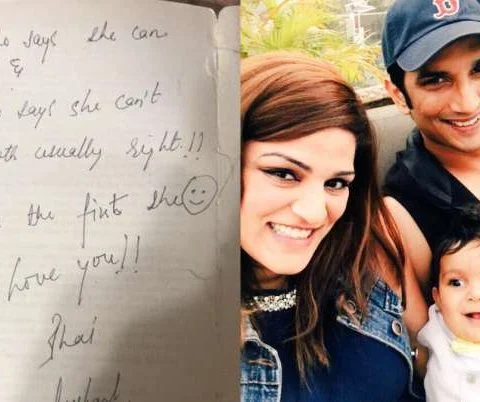 says she can
&
says she can't
usually right!!
the first she
love you!!
Bhai
B